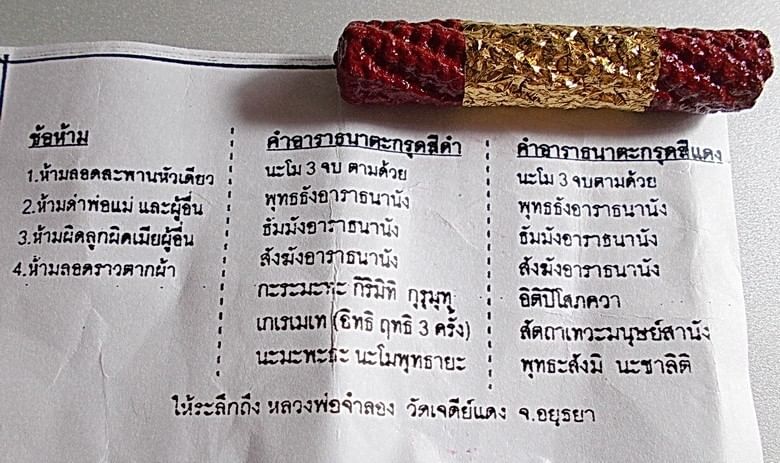 ข้อห้าม
1.ห้ามลอดสะพานหัวเดียว
2.ห้ามด่าพ่อแม่ และผู้อื่น
3.ห้ามผิดลูกผิดเมียผู้อื่น
4.ห้ามลอดราวตากผ้า
คำอาราธนาตะกรุดสีดำ
นะโม 3 จบ ตามด้วย
พุทธธังอาราธนานัง
ธัมมังอาราธนานัง
สังฆังอาราธนานัง
กะระมะทะ กิริมิทิ กุรุมุทุ
เกเรเมเท (อิทธิ ฤทธิ 3 ครั้ง)
นะมะพะธะ นะโมพุทธายะ
คำอาราธนาตะกรุดสีแดง
นะโม 3 จบตามด้วย
พุทธธังอาราธนานัง
ธัมมังอาราธนานัง
สังฆังอาราธนานัง
อิติปิโสภควา
สัตถาเทวะมนุษย์สานัง
พุทธะสังมิ นะชาลิติ
ให้ระลึกถึง หลวงพ่อจำลอง วัดเจดีย์แดง จ.อยุธยา